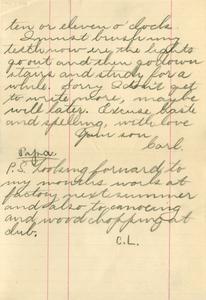 ten or eleven o'clock.
I must brush my
teeth now ere the lights
go out and then go down
stairs and study for a
while. Sorry I don't get
to write more, maybe
will later. Excuse haste
and spelling, with love
Your son
Carl.
Papa.
P.S. Looking forward to
my months work at
factory next summer
and also to canoeing
and wood chopping at
club.
C.L.